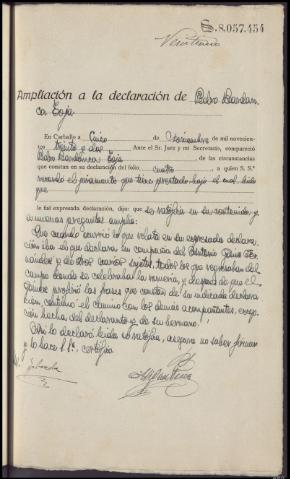 S. 8.057.454
Ampliación a la declaración de Pedro
En Carballo a Cinco de Noviembre de mil novecien-
tos treinta y dos Ante el Sr. Juez y mi Secretario, compareció
Pedro, de las circunstancias
que constan en su declaración del folio cuatro a quien S. Sª
el juramento que tiene prestado bajo el cual
que
le fué expresada declaración, dijo: que se ratifica en su contenido, y
a nuevas preguntas amplía:
Que cuando ocurrió lo que relata en su expresada declara-
ción iba el que declara en compañía del
y de otros varios sujetos, todos los que regresaban del
campo donde se celebraba la romería, y después de que el
las frases que constan de su indicada declara-
ción, continuó el camino con los demás acompañantes, excep-
ción hecha del declarante y de su hermano.
Así lo declaró leído se ratifica, asegura no saber firmar
y lo hace S. Sª. certifico